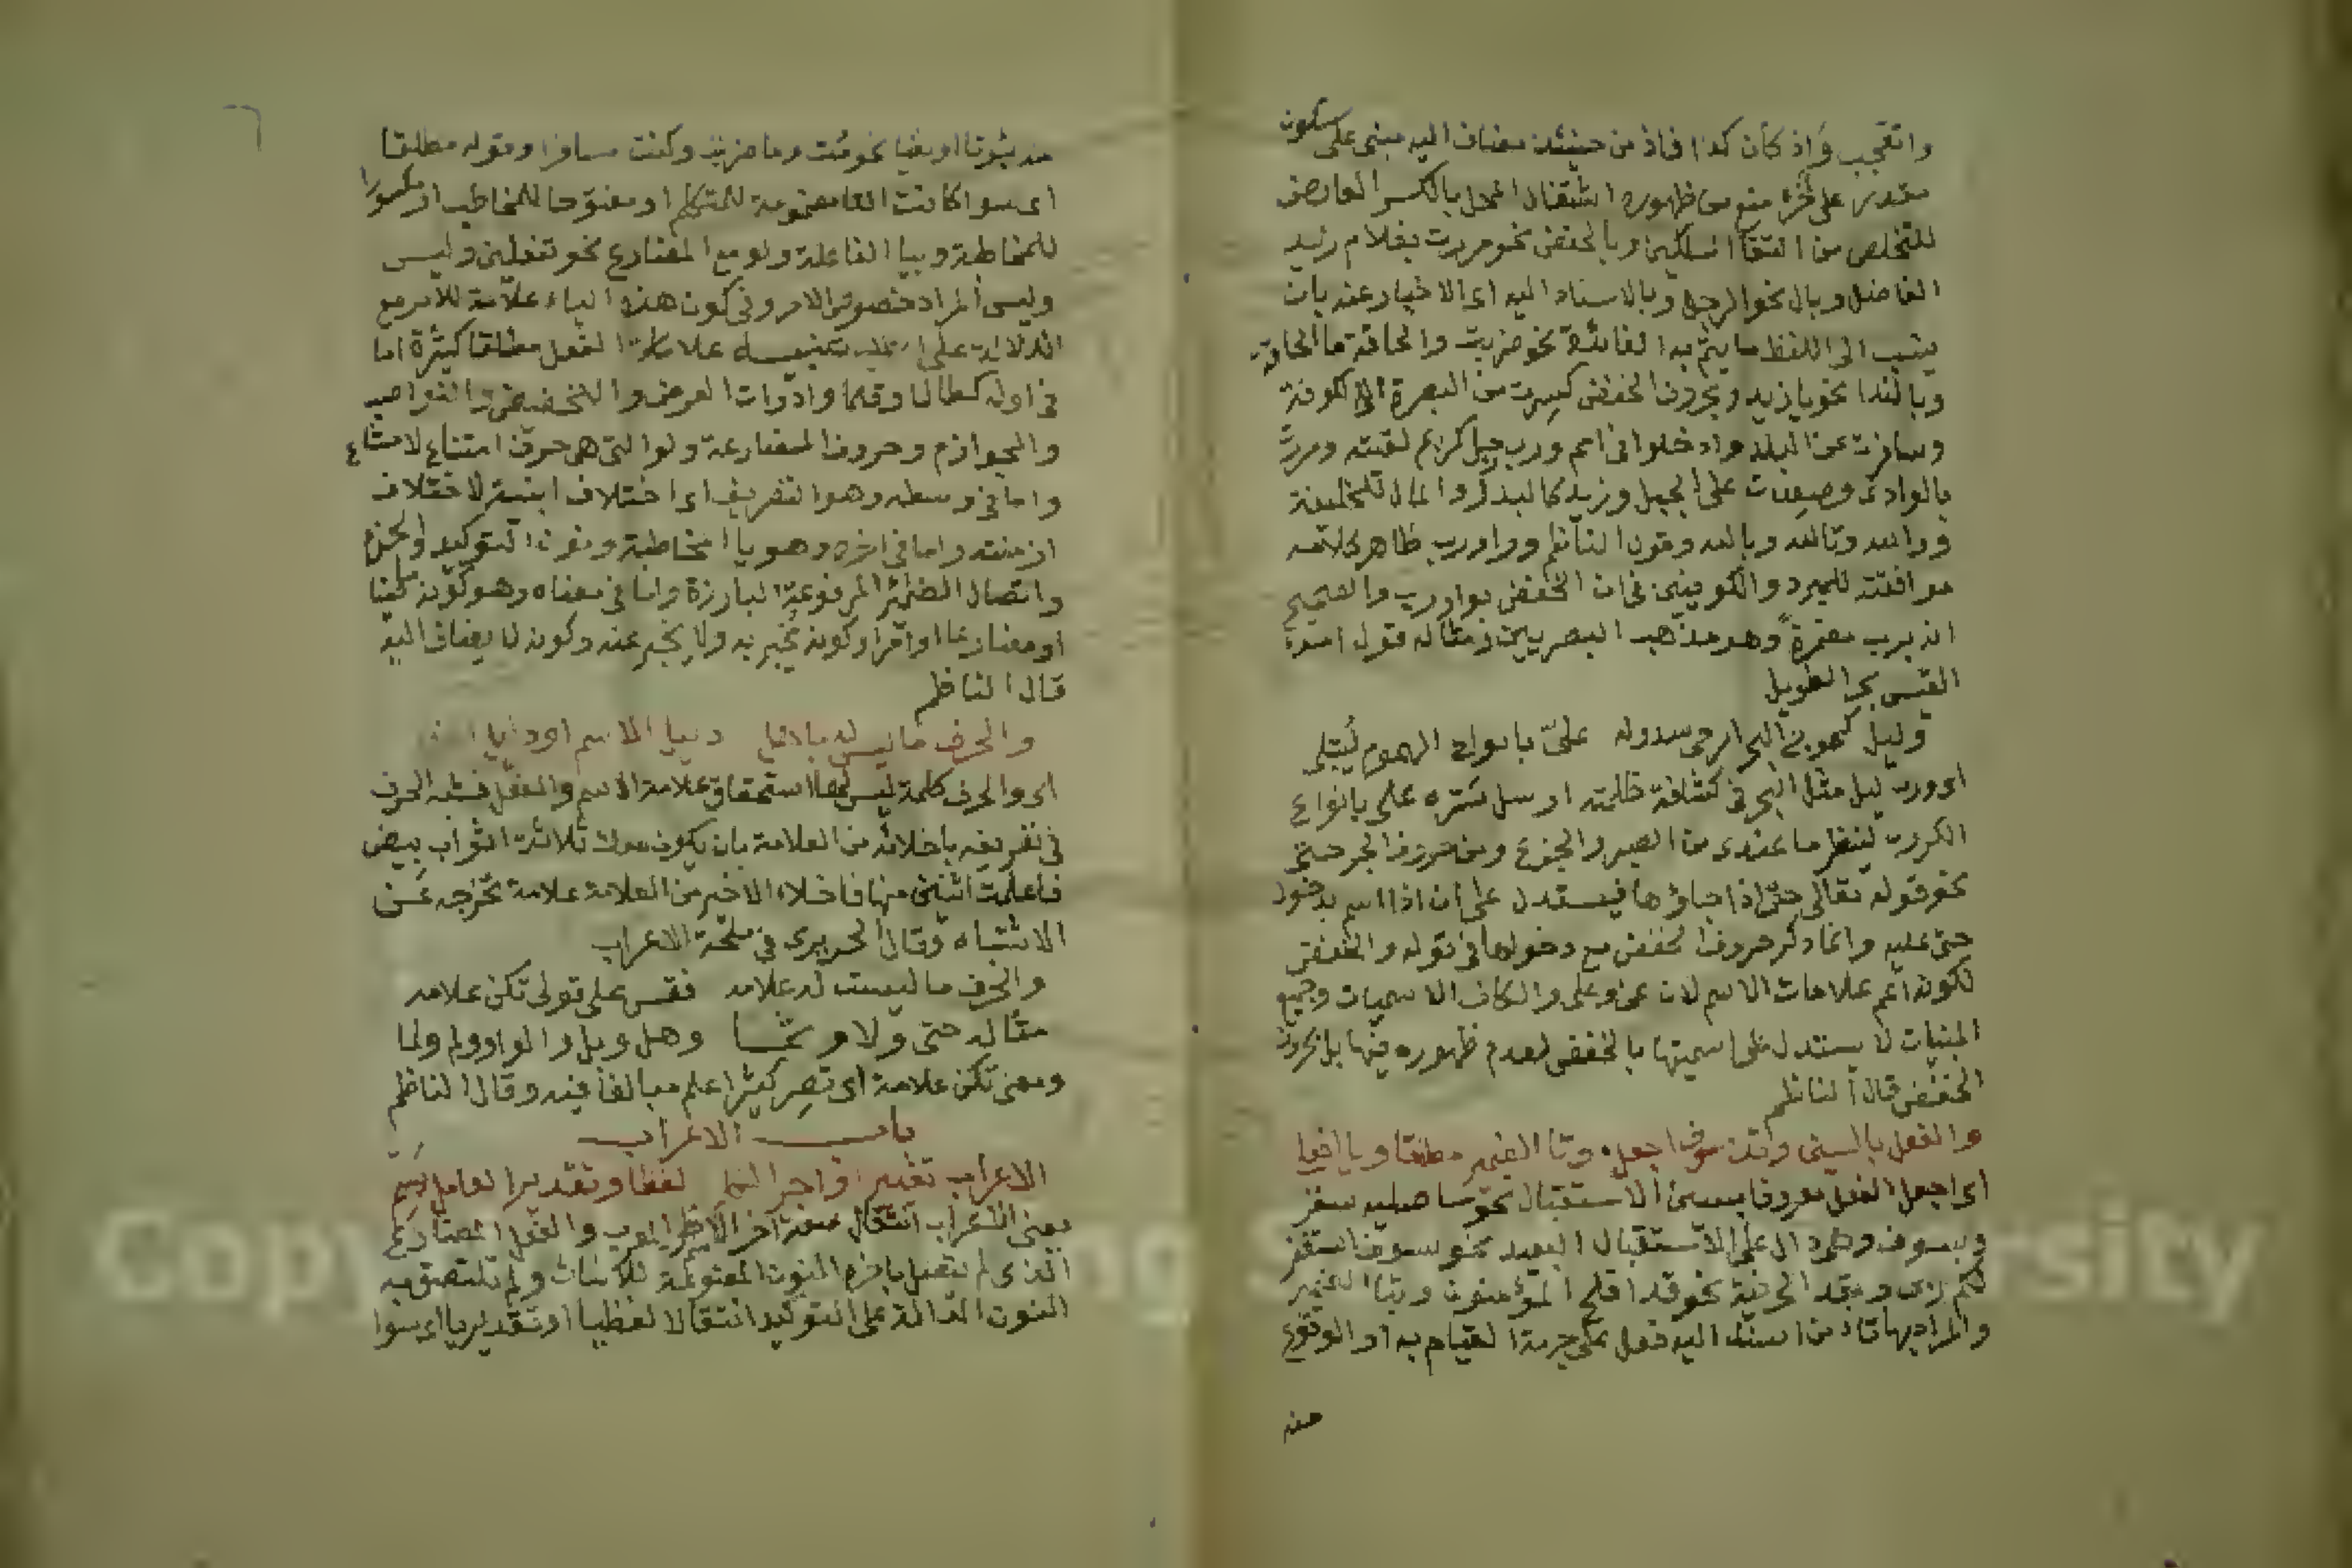 واتعجب واذ كان كذا فاذ من حينئذ مضاف اليه مبنى على سكون
مقدر على اخره منع من ظهوره اشتغال المحل بالكسر العارض
للتخلص من التقا الساكنين وبالخفض نحو مررت بغلام زيد
الفاضل وبال نحو الرجل وبالاسناد اليه اى الاخبار عنه بان
ينسب الى اللفظ ما يتم به الفائدة نحو ضربت والحاقة ما الحاقة
وبالندا نحو يا زيد وبحروف الخفض كسرت من البصرة الى الكوفة
وسافرت عن البلد وادخلوا فى امم ورب رجل كريم لقيته ومررت
بالوادى وصعدت على الجبل وزيد كالبدر والمال للخليفة
ووالله وتالله وبالله وقول الناظم وواو رب ظاهر كلامه
موافقته للمبرد والكوفيين فى ان الخفض بواو رب والصحيح
انه برب مضمرة وهو مذهب البصريين ومثاله قول امرء
القيس بحر الطويل
وليل كموج البحر ارخى سدوله على بانواع الهموم ليبتلى
اى ورب ليل مثل البحر فى كثافة ظلمته ارسل ستره على بانواع
الكروب لينظر ما عندى من الصبر والجزع ومن حروف الجر حتى
نحو قوله تعالى حتى اذا جاؤها فيستدل على ان اذا اسم بدخول
حتى عليه وانما ذكر حروف الخفض مع دخولها فى قوله والخفض
لكونه اعم علامات الاسم لان عن وعلى والكاف الاسميات وجميع
المبنيات لا يستدل على اسميتها بالخفض لعدم ظهوره فيها بل بحروف
الخفض قال الناظم
والفعل بالسين وقد سوف اجعل وتا الضمير مطلقا ويا افعلى
اى اجعل الفعل معروفا بسين الاستقبال نحو ساصليه سقر
وبسوف وهى دال على الاستقبال البعيد نحو سوف استغفر
لكم ربى وبقد الحرفية نحو قد افلح المؤمنون وبتا الضمير
والمراد بها تاء من اسند اليه فعل على جهة القيام به او الوقوع
منه
منه ثبوتا او نفيا نحو قمت وما ضربت وكنت مسافرا وقوله مطلقا
اى سوا كانت التا مضمومة للمتكلم او مفتوحا للمخاطب او مكسورا
للمخاطبة وبيا الفاعلة ولو مع المضارع نحو تفعلين وليس
وليس المراد خصوص الامر وفى كون هذه الياء علامة للامر مع
الدلالة على الطلب علامات الفعل مطلقا كثيرة اما
فى اوله كطالما وقلما وادوات العرض والتحضيض والنواصب
والجوازم وحروف المضارعة ولو التى هى حرف امتناع لامتناع
واما فى وسطه وهو التصريف اى اختلاف ابنية لاختلاف
ازمنته واما فى اخره وهو يا المخاطبة ونون التوكيد والجزم
واتصال الضمائر المرفوعة البارزة واما فى معناه وهو كونه ماضيا
او مضارعا او امرا وكونه يخبر به ولا يخبر عنه وكونه لا يضاف اليه
قال الناظم
والحرف ما ليس له بلائق دليل الاسم او دليل
اى والحرف كلمة ليس لها استحقاق علامة الاسم والفعل فشبه الحرف
فى تعريفه باخلائه من العلامة بان يكون معك ثلاثة اثواب بيض
فاعلمت اثنين منها فاخلاء الاخير من العلامة علامة تخرجه عن
الاشتباه وقال الحريرى فى ملحة الاعراب
والحرف ما ليست له علامه فقس على قولى تكن علامه
مثاله حتى ولا وثما وهل وبل والواو ولم ولما
ومعنى تكن علامة اى تصر كثير العلم مبالغا فيه وقال الناظم
باب الاعراب
الاعراب تغيير اواخر الكلم لفظا وتقديرا لعامل
يعنى الاعراب انتقال صفة آخر الاسم المعرب والفعل المضارع
الذى لم يتصل باخره النون الموضوعة للاناث ولم تلتصق به
النون الدالة على التوكيد انتقالا لفظيا او تقديريا اى سوا